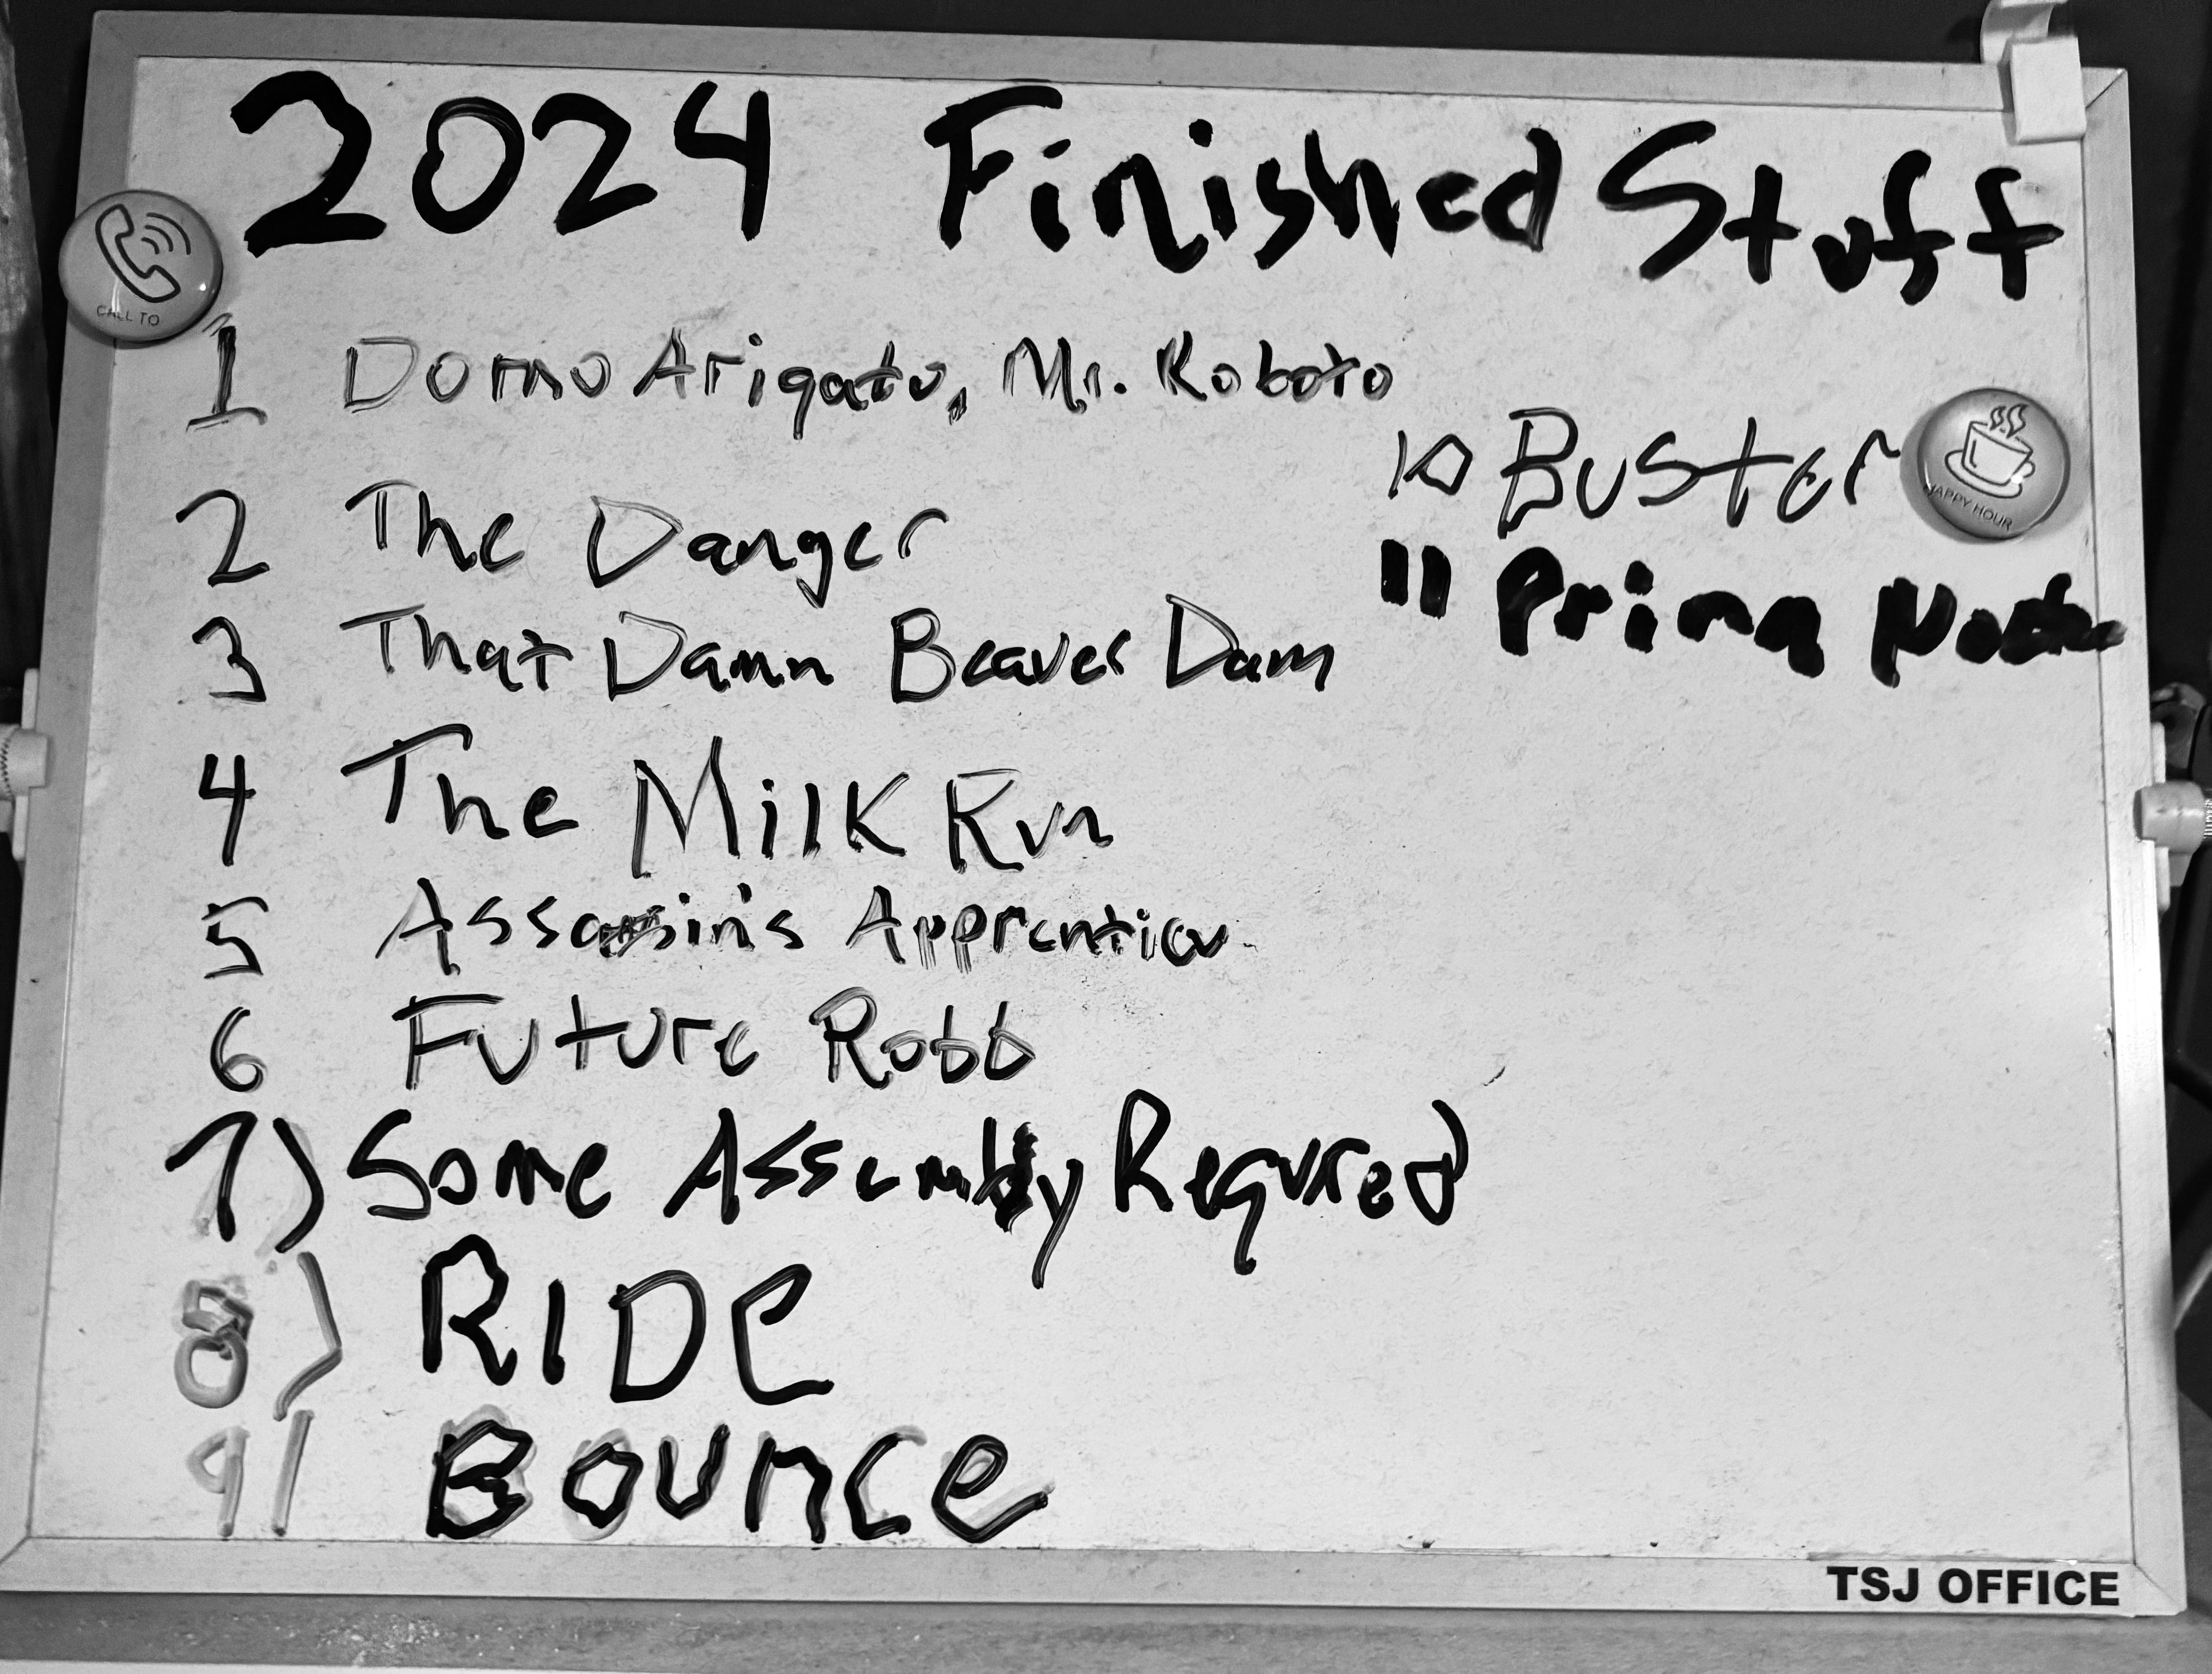 2024 Finished Stuff
CALL TO
1 Domo Arigato, Mr. Roboto
2 The Danger
3 That Damn Beaver Dam
4 The Milk Run
5 Assassin's Apprentice
6 Future Robb
7) Some Assembly Requred
8) RIDE
9) Bounce
10 Buster
HAPPY HOUR
11 Prima
TSJ OFFICE